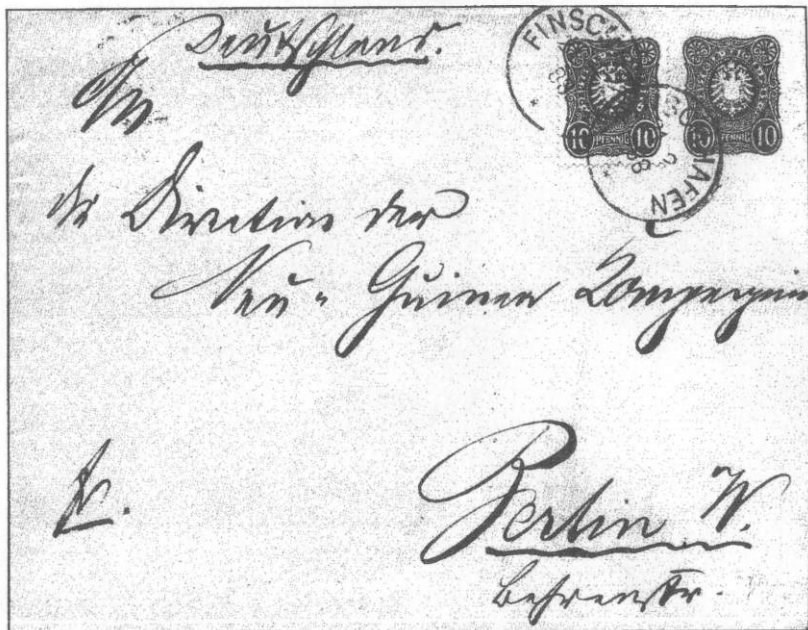 Deutschland.
FINSCH
88
10 PFENNIG 10
10 PFENNIG 10
FINSCHHAFEN
88
An
die Direction der
Neu-Guinea Compagnie
fr.
Berlin W.
Behrenstr.